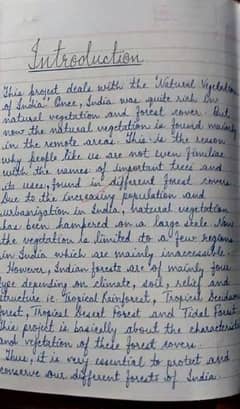 Introduction
This project deals with the 'Natural Vegetation
of India'. Once, India was quite rich in
natural vegetation and forest cover. But
now the natural vegetation is found mainly
in the remote areas. This is the reason
why people like us are not even familiar
with the names of important trees and
its uses, found in different forest covers.
Due to the increasing population and
urbanization in India, natural vegetation
has been hampered on a large scale. Now
the vegetation is limited to a few regions
in India which are mainly inaccessible.
However, Indian forests are of mainly four
type depending on climate, soil, relief and
structure ie. Tropical Rainforest, Tropical Deciduous
Forest, Tropical Desert Forest and Tidal Forest.
This project is basically about the characteristics
and vegetation of these forest covers.
Thus, it is very essential to protect and
conserve our different forests of India.